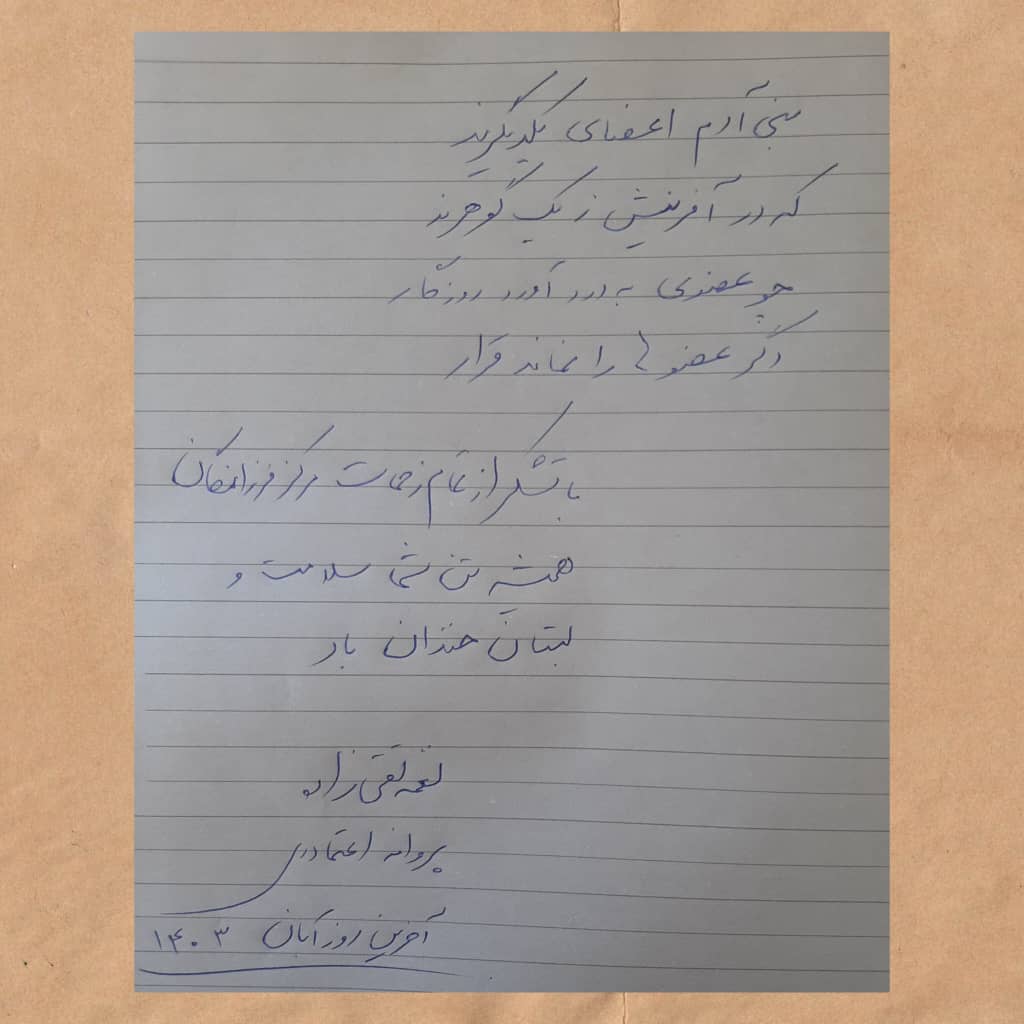 بنی آدم اعضای یکدیگرند
که در آفرینش ز یک گوهرند
چو عضوی به درد آورد روزگار
دگر عضو ها را نماند قرار
با تشکر از تمام زحمات مرکز فرزانگان
همیشه تن شما سلامت و
لبتان خندان باد
نغمه تقی زاده
پروانه اعتمادی
آخرین روز آبان ۱۴۰۳